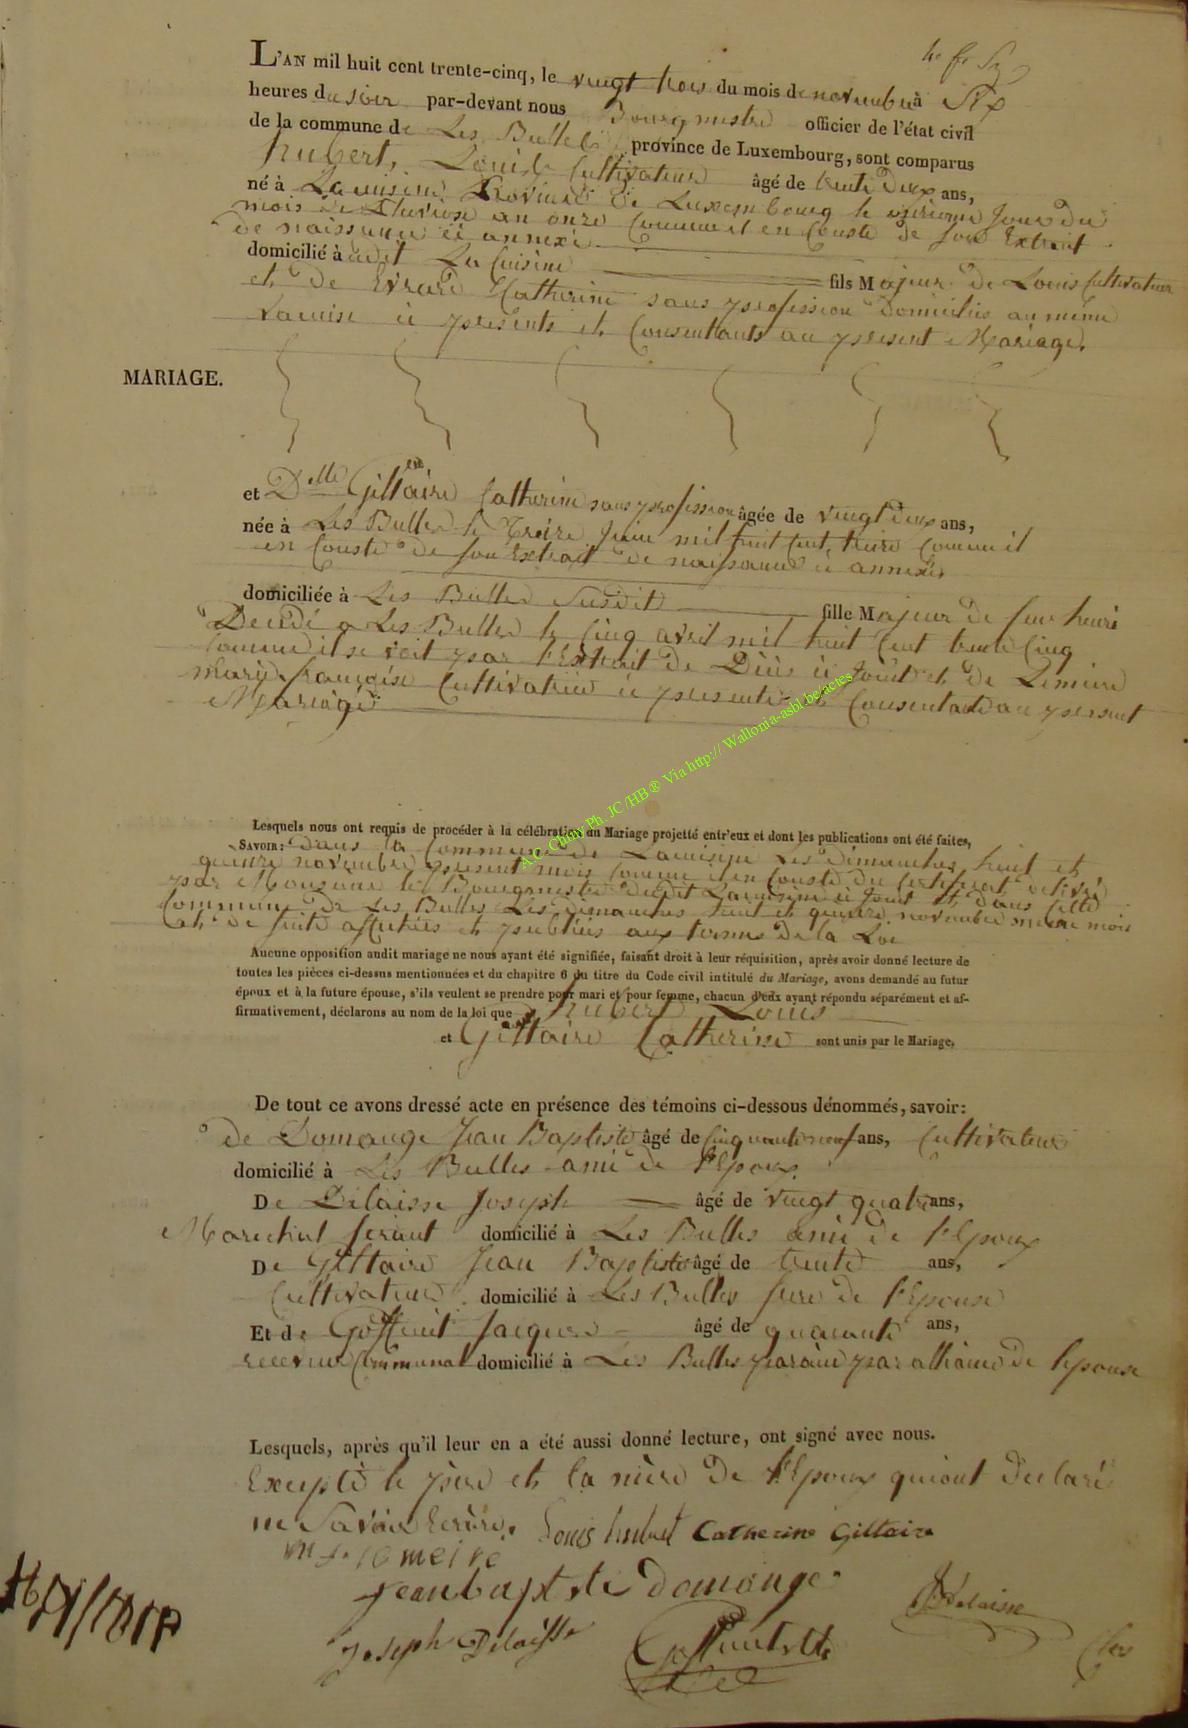 L'AN mil huit cent trente-cinq, le vingt trois du mois de novembre à Six
heures du soir par-devant nous Bourgmestre officier de l'état civil
de la commune de Les Bulles province de Luxembourg, sont comparus
hubert, Louis Cultivateur âgé de trente deux ans,
né à Lacuisine Province de Luxembourg le jour du
mois de Pluviose an onze Comme il en Conste de son Extrait
de naissance ci annexé
domicilié à udit La Cuisine fils Majeur de Louis Cultivateur
et de Evrard Catherine sans profession domiciliés au même
Lacuisine ci présents et Consentants au présent Mariage.
MARIAGE.
et Delle Giltaire Catherine sans profession âgée de vingt deux ans,
née à Les Bulles le Treize Juin mil huit Cent treize Comme il
en Conste de son Extrait de naissance ci annexé.
domiciliée à Les Bulles Susdit fille Majeur de feu henri
Décédé a Les Bulles le Cinq avril mil huit Cent trente Cinq
Comme il se voit par l'Extrait de Décès ci Joint et de Lemeire
Marie françoise Cultivatrice ci présente et Consentante au présent
Mariage
A.C. Chiny Ph. JC/HB® Via http:// Wallonia-asbl.be/actes
Lesquels nous ont requis de procéder à la célébration du Mariage projetté entr'eux et dont les publications ont été faites,
SAVOIR: Dans la Commune de Lacuisine Les Dimanches huit et
quinze novembre présent mois Comme il en Conste du Certificat délivré
par Monsieur le Bourgmestre dudit Lacuisine ci Joint et dans cette
Commune de Les Bulles Les Dimanches huit et quinze novembre même mois
et de suite affichées et publiées aux termes de la Loi
Aucune opposition audit mariage ne nous ayant été signifiée, faisant droit à leur réquisition, après avoir donné lecture de
toutes les pièces ci-dessus mentionnées et du chapitre 6 du titre du Code civil intitulé du Mariage, avons demandé au futur
époux et à la future épouse, s'ils veulent se prendre pour mari et pour femme, chacun d'eux ayant répondu séparément et af-
firmativement, déclarons au nom de la loi que hubert Louis
et Giltaire Catherine sont unis par le Mariage.
De tout ce avons dressé acte en présence des témoins ci-dessous dénommés, savoir:
de Domange Jean Baptiste âgé de Cinquante neuf ans, Cultivateur
domicilié à Les Bulles ami de l'Epoux
De Delaisse Joseph âgé de vingt quatre ans,
Marechal ferant domicilié à Les Bulles ami de l'Epoux
De Giltaire Jean Baptiste âgé de trente ans,
Cultivateur domicilié à Les Bulles frere de l'Epouse
Et de Goffinet Jacques âgé de quarante ans,
receveur Communal domicilié à Les Bulles parain par alliance de l'epouse
Lesquels, après qu'il leur en a été aussi donné lecture, ont signé avec nous.
Excepté le père et la mère de l'Epoux qui ont déclaré
ne Savoir Ecrire. Louis hubert Catherine Giltaire
m f lemeire
Jean baptiste domange
Joseph Delaisse
J Delaisse